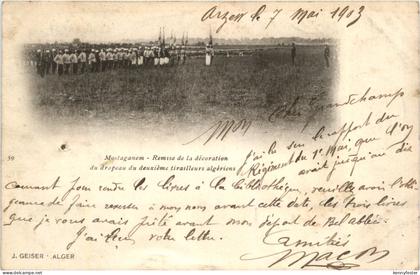 Arzew le 7 mai 1903
Amitiés
59
Mostaganem - Remise de la décoration
du drapeau du deuxième tirailleurs algériens
Mon Cher Grandchamp
J'ai lu sur le rapport du
Régiment du 1er Mai, que l'on
avait jusqu'au dix
Courant pour rendre les livres à la bibliothèque, veuillez avoir l'obli
geance de faire remettre à mon nom avant cette date, les trois livres
que je vous avais prêté avant mon départ de Bel abbès.
J'ai lieu votre lettre.
Amitiés
J. GEISER - ALGER